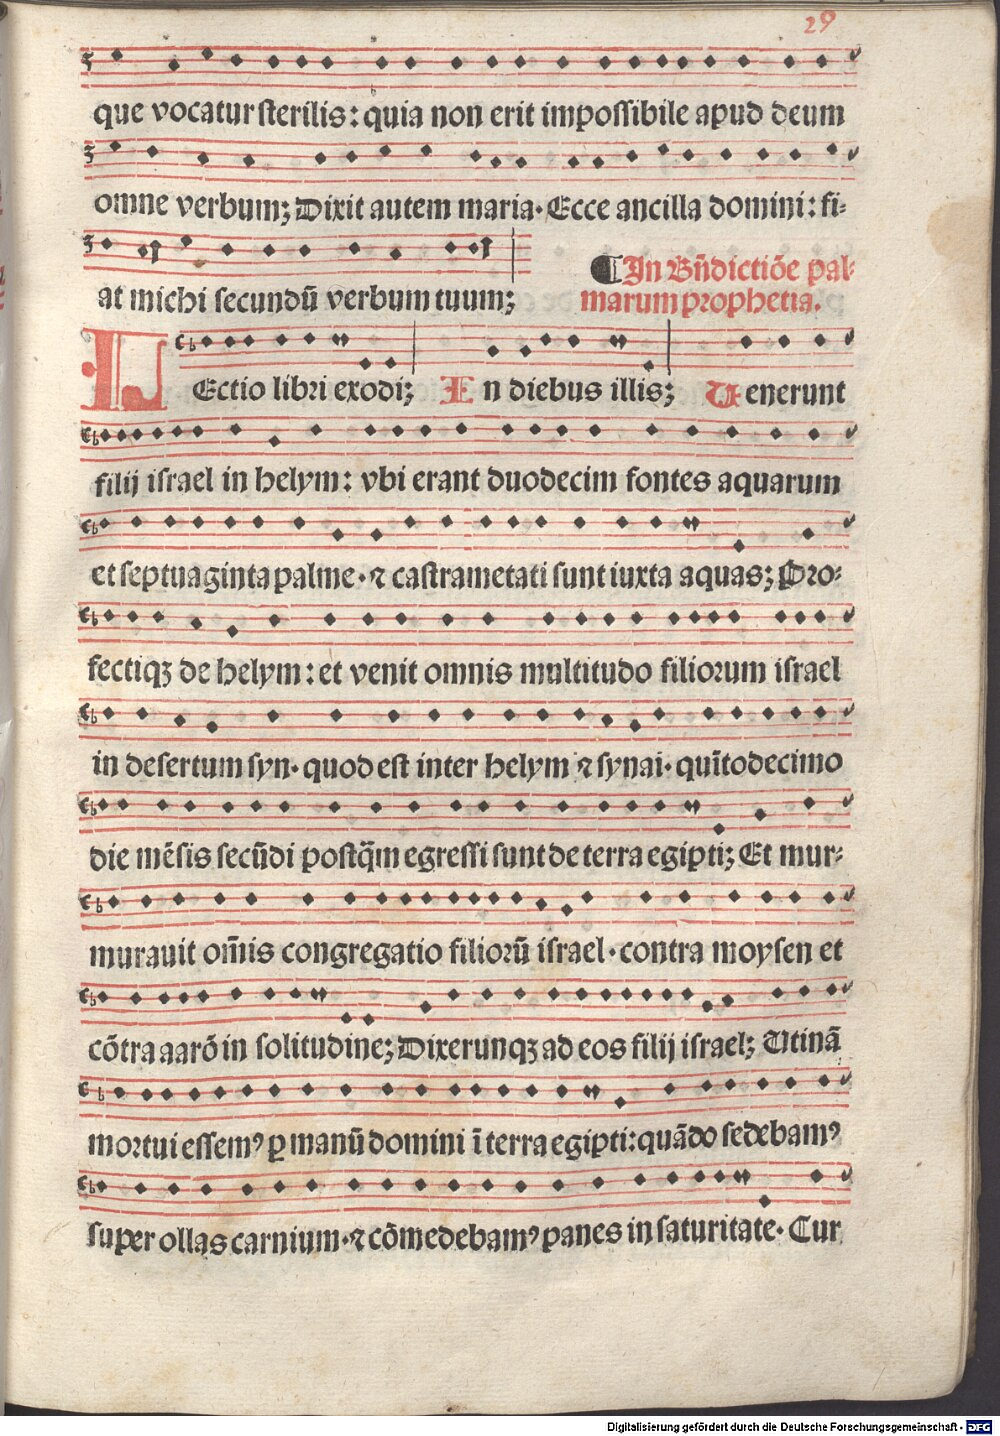 29
que vocatur ſterilis: quia non erit impoſſibile apud deum
omne verbum; Dixit autem maria· Ecce ancilla domini: fi⸗
at michi ſecundū verbum tuum;
¶In Bn̄dictiōe pal⸗
marum prophetia.
LEctio libri exodi; In diebus illis; Uenerunt
filij iſrael in helym: vbi erant duodecim fontes aquarum
et ſeptuaginta palme· ⁊ caſtrametati ſunt iuxta aquas; Pro⸗
fectiqꝫ de helym: et venit omnis multitudo filiorum iſrael
in deſertum ſyn· quod eſt inter helym ⁊ ſynai· quītodecimo
die mēſis ſecūdi poſtq̄m egreſſi ſunt de terra egipti; Et mur⸗
murauit om̄is congregatio filiorū iſrael· contra moyſen et
cōtra aarō in ſolitudine; Dixerunqꝫ ad eos filij iſrael; Utinā
mortui eſſemꝰ ꝑ manū domini ī terra egipti: quādo ſedebamꝰ
ſuper ollas carnium· ⁊ cōmedebamꝰ panes in ſaturitate· Cur
Digitalisierung gefördert durch die Deutsche Forschungsgemeinschaft - DFG